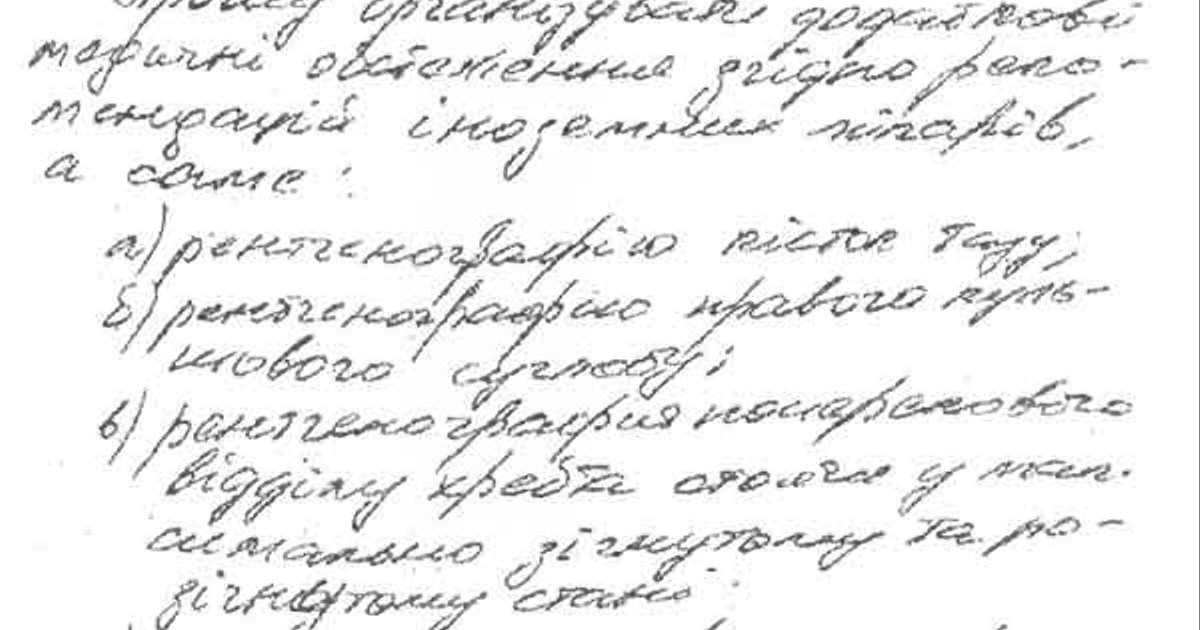 прошу організувати додаткові
медичні обстеження згідно реко-
мендацій іноземних лікарів,
а саме:
а) рентгенографію кісток тазу;
б) рентгенографію правого куль-
шового суглобу;
в) рентгенография поперекового
відділу хребта стоячи у мак-
симально зігнутому та ро-
зігнутому стані